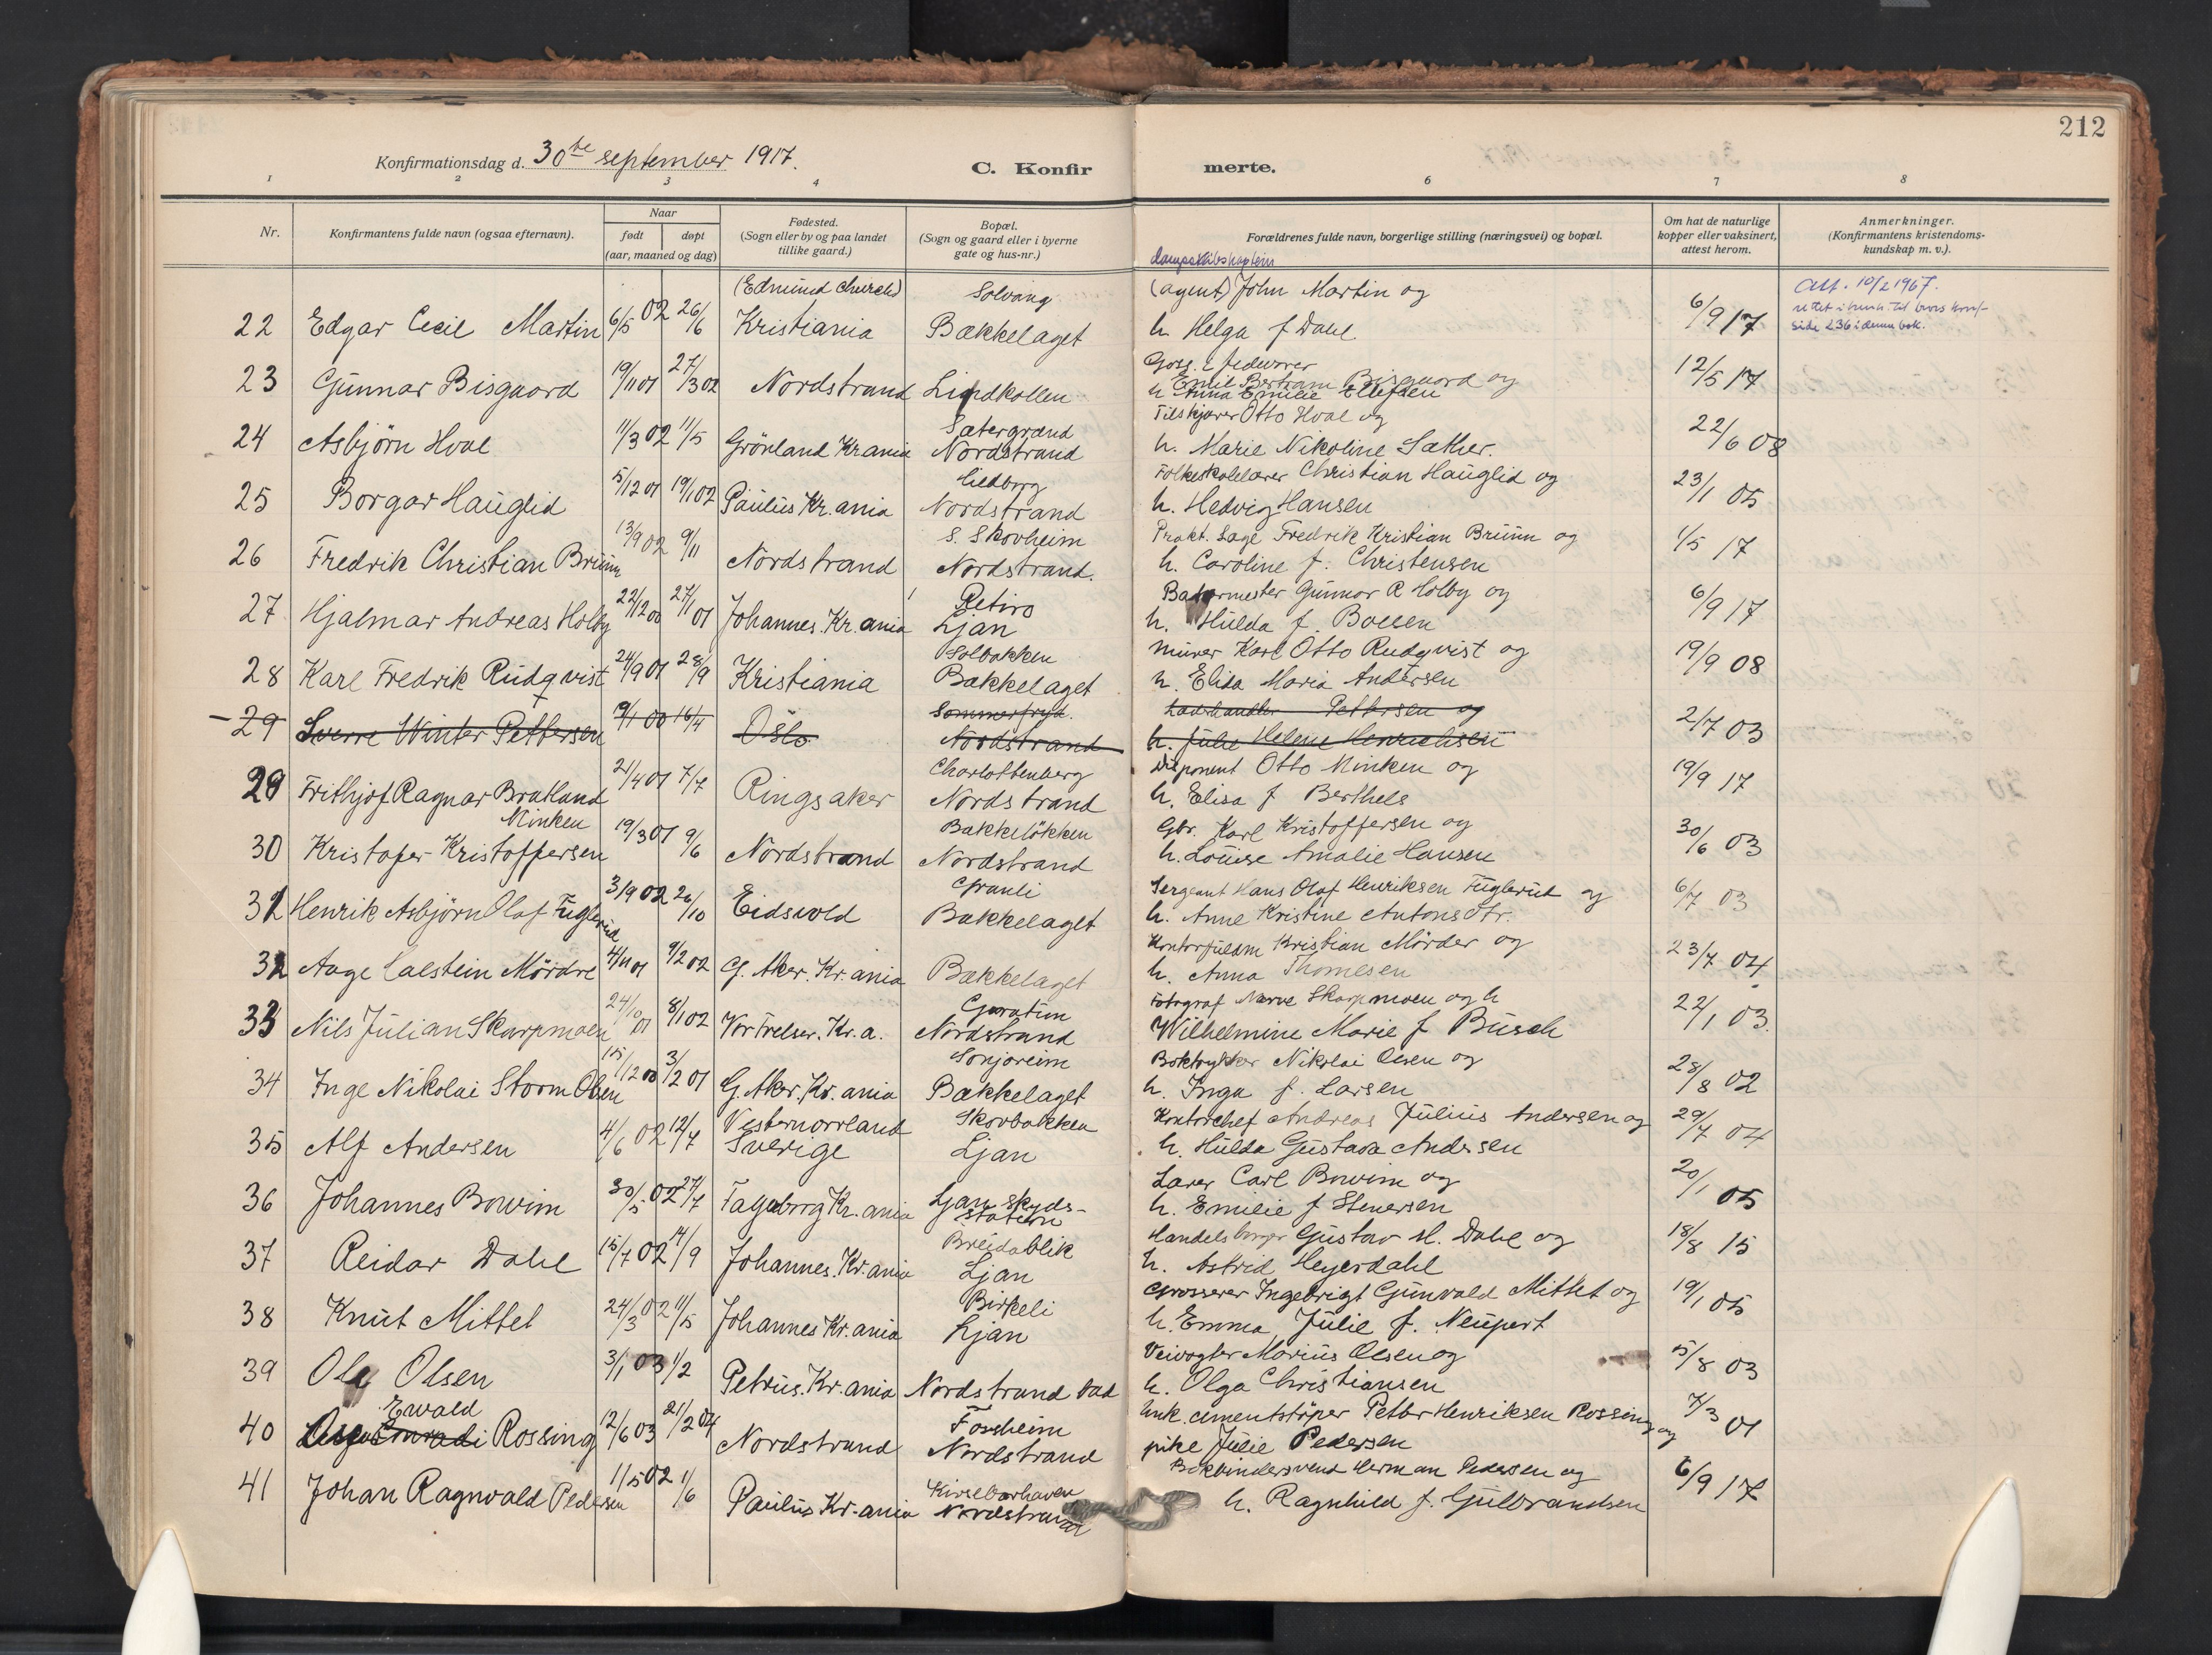 212
Konfirmationsdag d. 30te september 1917.
C. Konfirmerte.
1 2 3 4 6 7 8
Nr.
Konfirmantens fulde navn (ogsaa efternavn).
Naar
født døpt
(aar, maaned og dag)
Fødested.
(Sogn eller by og paa landet
tillike gaard.)
Bopæl.
(Sogn og gaard eller i byerne
gate og hus-nr.)
Forældrenes fulde navn, borgerlige stilling (næringsvei) og bopæl.
Om hat de naturlige
kopper eller vaksinert,
attest herom.
Anmerkninger.
(Konfirmantens kristendoms-
kundskap m. v.).
dampskibskaptein
(Edmund Church) Solvang (agent) John Martin og Att. 10/2 1967.
22 Edgar Cecil Martin 6/5 02 26/6 Kristiania Bækkelaget h. Helga f Dahl 6/9 17 side 236 i denne bok.
23 Gunnar Bisgaard 19/11 01 27/3 02 Nordstrand Lindkollen
Emil Bertram Bisgaard og 12/5 17
h Anna Emilie Ellefsen
Sætergrænd Otto Hval og
24 Asbjørn Hval 11/3 02 11/5 Grönland Kr.ania Nordstrand h. Marie Nikoline Sæther. 22/6 08
Folkeskolelærer Christian Hauglid og
25 Borgar Hauglid 5/12 01 19/1 02 Paulus Kr.ania Nordstrand h. Hedvig Hansen 23/1 05
S. Skovheim Prakt. Læge Fredrik Kristian Brüün og
26 Fredrik Christian Brüün 13/9 02 9/11 Nordstrand Nordstrand. h. Caroline f. Christensen 1/5 17
Retiro Bakermester Gunnar R Holby og
27 Hjalmar Andreas Holby 22/12 00 27/1 01 Johannes. Kr.ania Ljan h. Hulda f. Boesen 6/9 17
Solbakken Murer Karl Otto Rudqvist og
28 Karl Fredrik Rudqvist 24/9 01 28/9 Kristiania Bækkelaget h. Elida Maria Andersen 19/9 08
Sommerfryd. Pettersen og
29 Sverre Winter Pettersen 19/1 00 16/4 Oslo Nordstrand h. Julie Helene Henrichsen 2/7 03
Charlottenberg Disponent Otto Minken og
29 Frithjof Ragnar Bratland Minken 21/4 01 7/7 Ringsaker Nordstrand h. Elisa f Berthels 19/9 17
Bækkeløkken Gbr. Karl Kristoffersen og
30 Kristofer Kristoffersen 19/3 01 9/6 Nordstrand Nordstrand h. Louise Amalie Hansen 30/6 03
Granli Sergeant Hans Olaf Henriksen Fuglerud og
31 Henrik Asbjørn Olaf Fuglerud 3/9 02 26/10 Eidsvold Bækkelaget h. Anne Kristine Antonsdtr. 6/7 03
Kristian Mörder og
32 Aage Mördre 4/11 01 9/2 02 G. Aker. Kr.ania Bækkelaget h. Anna Thomesen 23/7 04
Fotograf Narve Skarpmoen og h
33 Nils Julian Skarpmoen 24/10 01 8/1 02 Vor Frelser. Kr.a. Nordstrand Wilhelmine Marie f Busch 22/1 03.
Sonjareim Boktrykker Nikolai Olsen og
34 Inge Nikolai Storm Olsen 15/12 00 3/2 01 G. Aker. Kr.ania Bækkelaget h. Inga f. Larsen 28/8 02
Vesternorrland Skovbakken Kontorchef Andreas Julius Andersen og
35 Alf Andersen 4/6 02 12/7 Sverige Ljan h. Hulda Gustava Andersen 29/7 04
Lærer Carl Bowim og
36 Johannes Bowim 30/5 02 27/7 Fagerborg Kr.ania Ljan skyds-station h. Emilie f Stenersen 20/1 05
Breidablik Handelsborger Gustav M. Dahl og
37 Reidar Dahl 15/7 02 14/9 Johannes. Kr.ania Ljan h. Astrid Heyerdahl 18/8 15
Birkeli Grosserer Ingebrigt Gunvald Mittet og
38 Knut Mittet 24/3 02 11/5 Johannes Kr.ania Ljan h. Emma Julie f. Neupert 19/1 05
Veivogter Marius Olsen og
39 Ole Olsen 3/1 03 1/2 Petrus. Kr.ania Nordstrand bad h. Olga Christiansen 5/8 03
Ewald Fossheim Unk. cementstøper Petter Henriksen Rossing og
40 Rossing 12/6 03 21/2 04 Nordstrand Nordstrand pike Julie Pedersen 7/3 01
Kirsebærhaven Bokbindersvend Herman Pedersen og
41 Johan Ragnvald Pedersen 1/5 02 1/6 Paulus Kr.ania Nordstrand h. Ragnhild f. Gulbrandsen 6/9 17